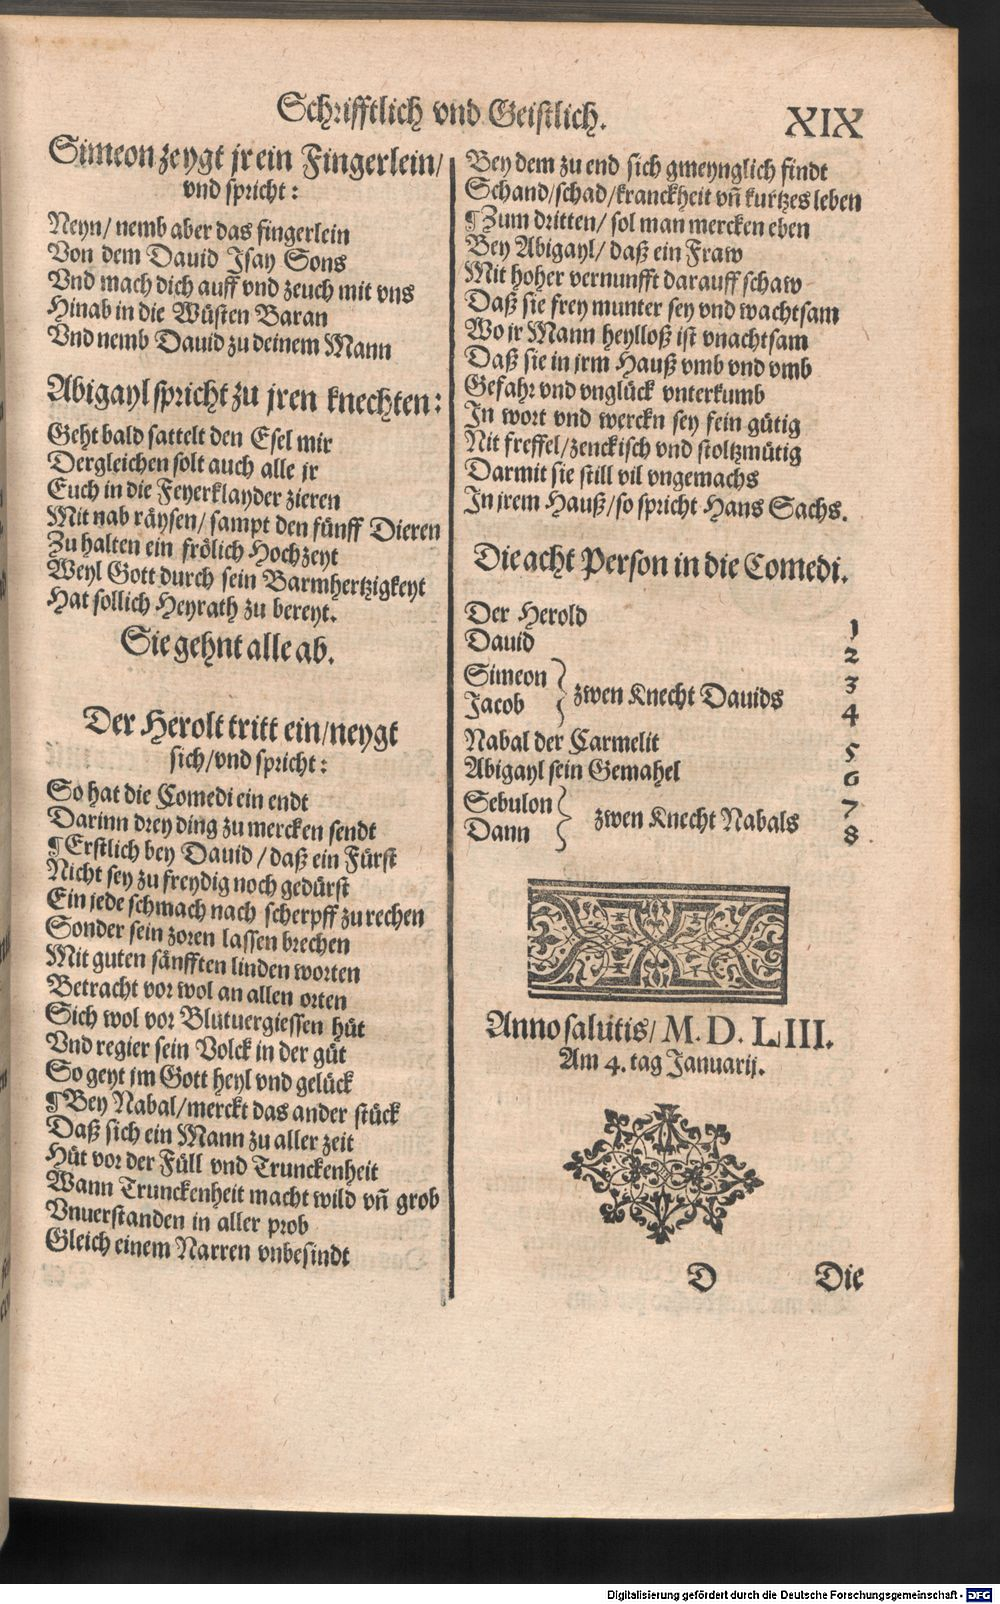 Schrifftlich vnd Geistlich.
XIX
Simeon zeygt jr ein Fingerlein/
vnd spricht:
Neyn/ nemb aber das fingerlein
Von dem Dauid Jsay Sons
Vnd mach dich auff vnd zeuch mit vns
Hinab in die Wüsten Baran
Vnd nemb Dauid zu deinem Mann
Abigayl spricht zu jren knechten:
Geht bald sattelt den Esel mir
Dergleichen solt auch alle jr
Euch in die Feyerklayder zieren
Mit nab räysen/ sampt den fünff Dieren
Zu halten ein frölich Hochzeyt
Weyl Gott durch sein Barmhertzigkeyt
Hat sollich Heyrath zu bereyt.
Sie gehnt alle ab.
Der Herolt tritt ein/neygt
sich/vnd spricht:
So hat die Comedi ein endt
Darinn drey ding zu mercken sendt
¶ Erstlich bey Dauid / daß ein Fürst
Nicht sey zu freydig noch gedürst
Ein jede schmach nach scherpff zu rechen
Sonder sein zoren lassen brechen
Mit guten sänfften linden worten
Betracht vor wol an allen orten
Sich wol vor Blutuergiessen hüt
Vnd regier sein Volck in der güt
So geyt jm Gott heyl vnd gelück
¶ Bey Nabal/merckt das ander stück
Daß sich ein Mann zu aller zeit
Hüt vor der Füll vnd Trunckenheit
Wann Trunckenheit macht wild vñ grob
Vnuerstanden in aller prob
Gleich einem Narren vnbesindt
Bey dem zu end sich gmeynglich findt
Schand/schad/kranckheit vñ kurtzes leben
¶ Zum dritten/ sol man mercken eben
Bey Abigayl/ daß ein Fraw
Mit hoher vernunfft darauff schaw
Daß sie frey munter sey vnd wachtsam
Wo ir Mann heylloß ist vnachtsam
Daß sie in jrm Hauß vmb vnd vmb
Gefahr vnd vnglück vnterkumb
In wort vnd werckn sey fein gütig
Nit freffel/zenckisch vnd stoltzmütig
Darmit sie still vil vngemachs
In jrem Hauß/so spricht Hans Sachs.
Die acht Person in die Comedi.
Der Herold 1
Dauid 2
Simeon 3
Jacob } zwen Knecht Dauids 4
Nabal der Carmelit 5
Abigayl sein Gemahel 6
Sebulon 7
Dann } zwen Knecht Nabals 8
Anno salutis/ M. D. LIII.
Am 4. tag Januarij.
D Die
Digitalisierung gefördert durch die Deutsche Forschungsgemeinschaft - DFG